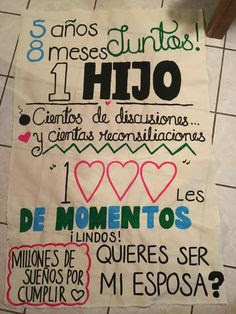 5 años
8 meses Juntos!
1 HIJO
Cientos de discusiones...
y cientas reconsiliaciones
"1000" Les
DE MOMENTOS
¡LINDOS!
MILLONES DE
SUEÑOS POR
CUMPLIR
QUIERES SER
MI ESPOSA?